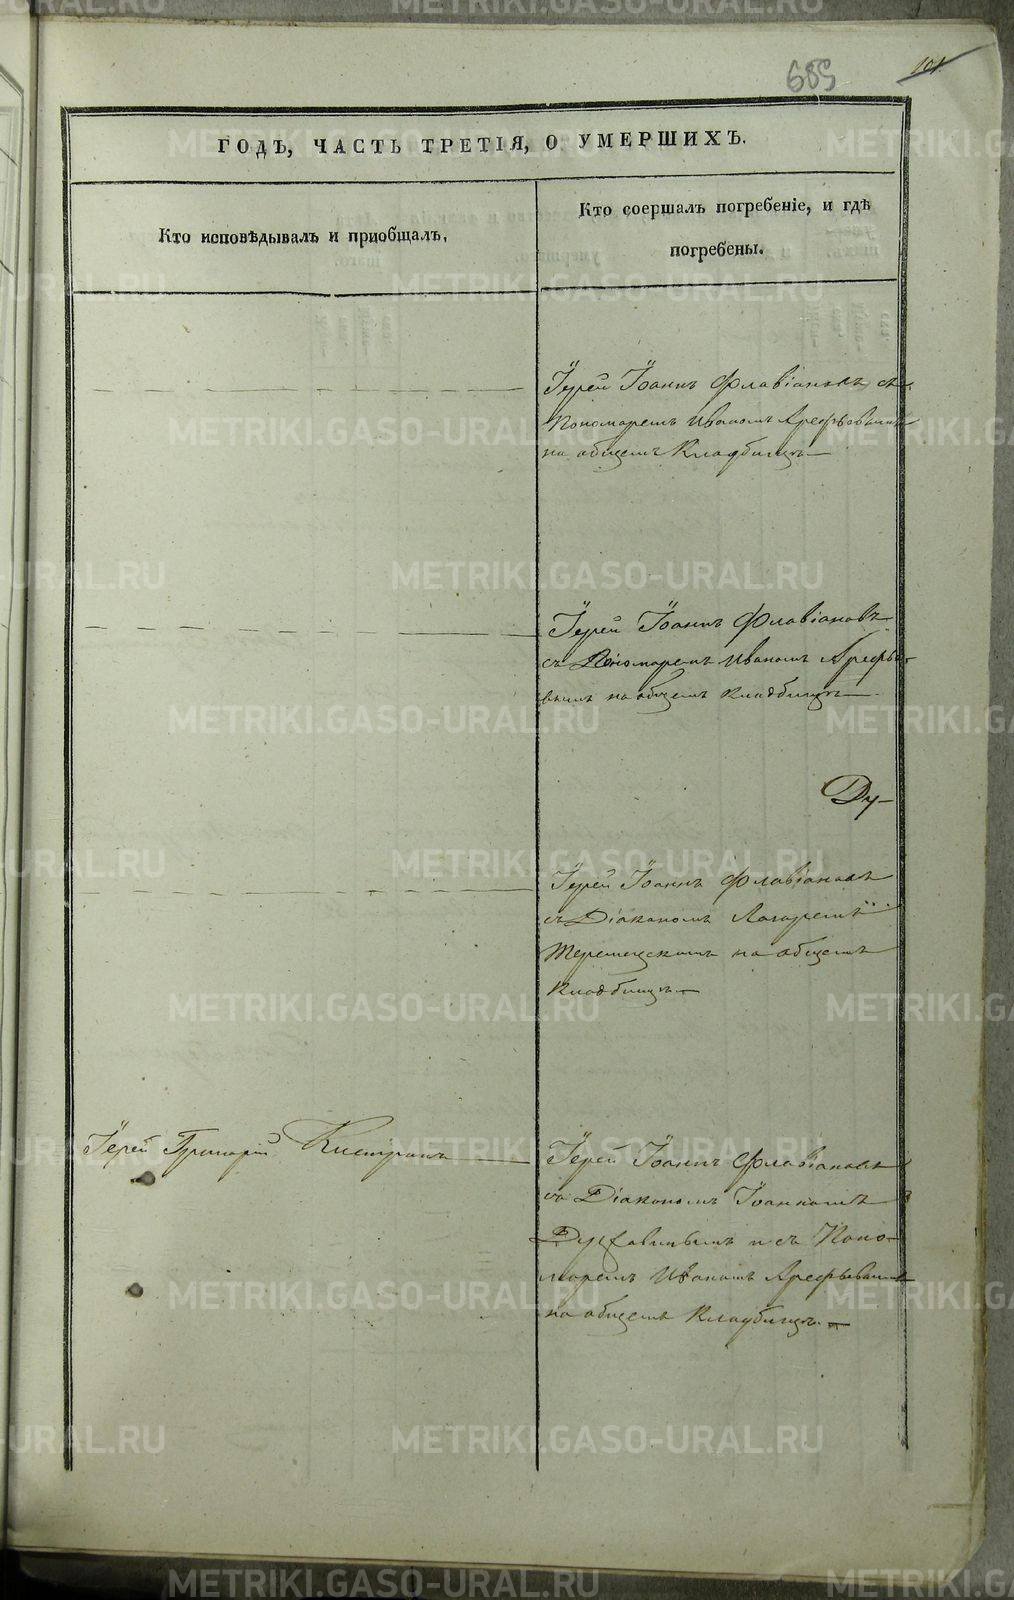 685
101
ГОДЪ, ЧАСТЬ ТРЕТІЯ, О УМЕРШИХЪ.
Кто исповѣдывалъ и приобщалъ.
Кто соершалъ погребеніе, и гдѣ
погребены.
Іерей Іоаннъ Флавіановъ съ
Пономаремъ Иваномъ Арефьевымъ
на общемъ Кладбищѣ
Іерей Іоаннъ Флавіановъ
съ Пономаремъ Иваномъ Арефье-
вымъ на общемъ кладбищѣ
Ду-
Іерей Іоаннъ Флавіановъ
съ Діакономъ Лазаремъ
на общемъ
Кладбищѣ
Іерей Григорій
Іерей Іоаннъ Флавіановъ
съ Діакономъ Іоанномъ
и съ Поно-
маремъ Иваномъ Арефьевымъ
на общемъ Кладбищѣ
METRIKI.GASO-URAL.RU